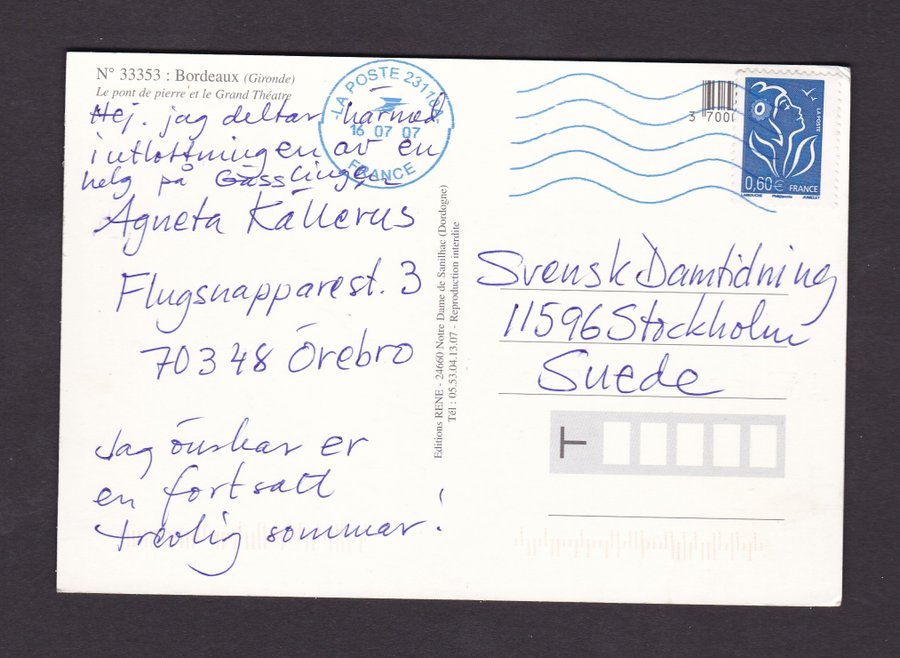 N° 33353 : Bordeaux (Gironde)
Le pont de pierre et le Grand Théatre
Hej. jag deltar härmed
i utlottningen av en
helg på Gässlingen
Agneta Källerus
Flugsnapparest. 3
70348 Örebro
Jag önskar er
en fortsatt
trevlig sommar!
LA POSTE
16 07 07
FRANCE
Editions RENE - 24660 Notre Dame de Sanilhac (Dordogne)
Tél : 05.53.04.13.07 - Reproduction interdite
3 7000
LA POSTE
0,60 € FRANCE
Svensk Damtidning
11596 Stockholm
Suede
T